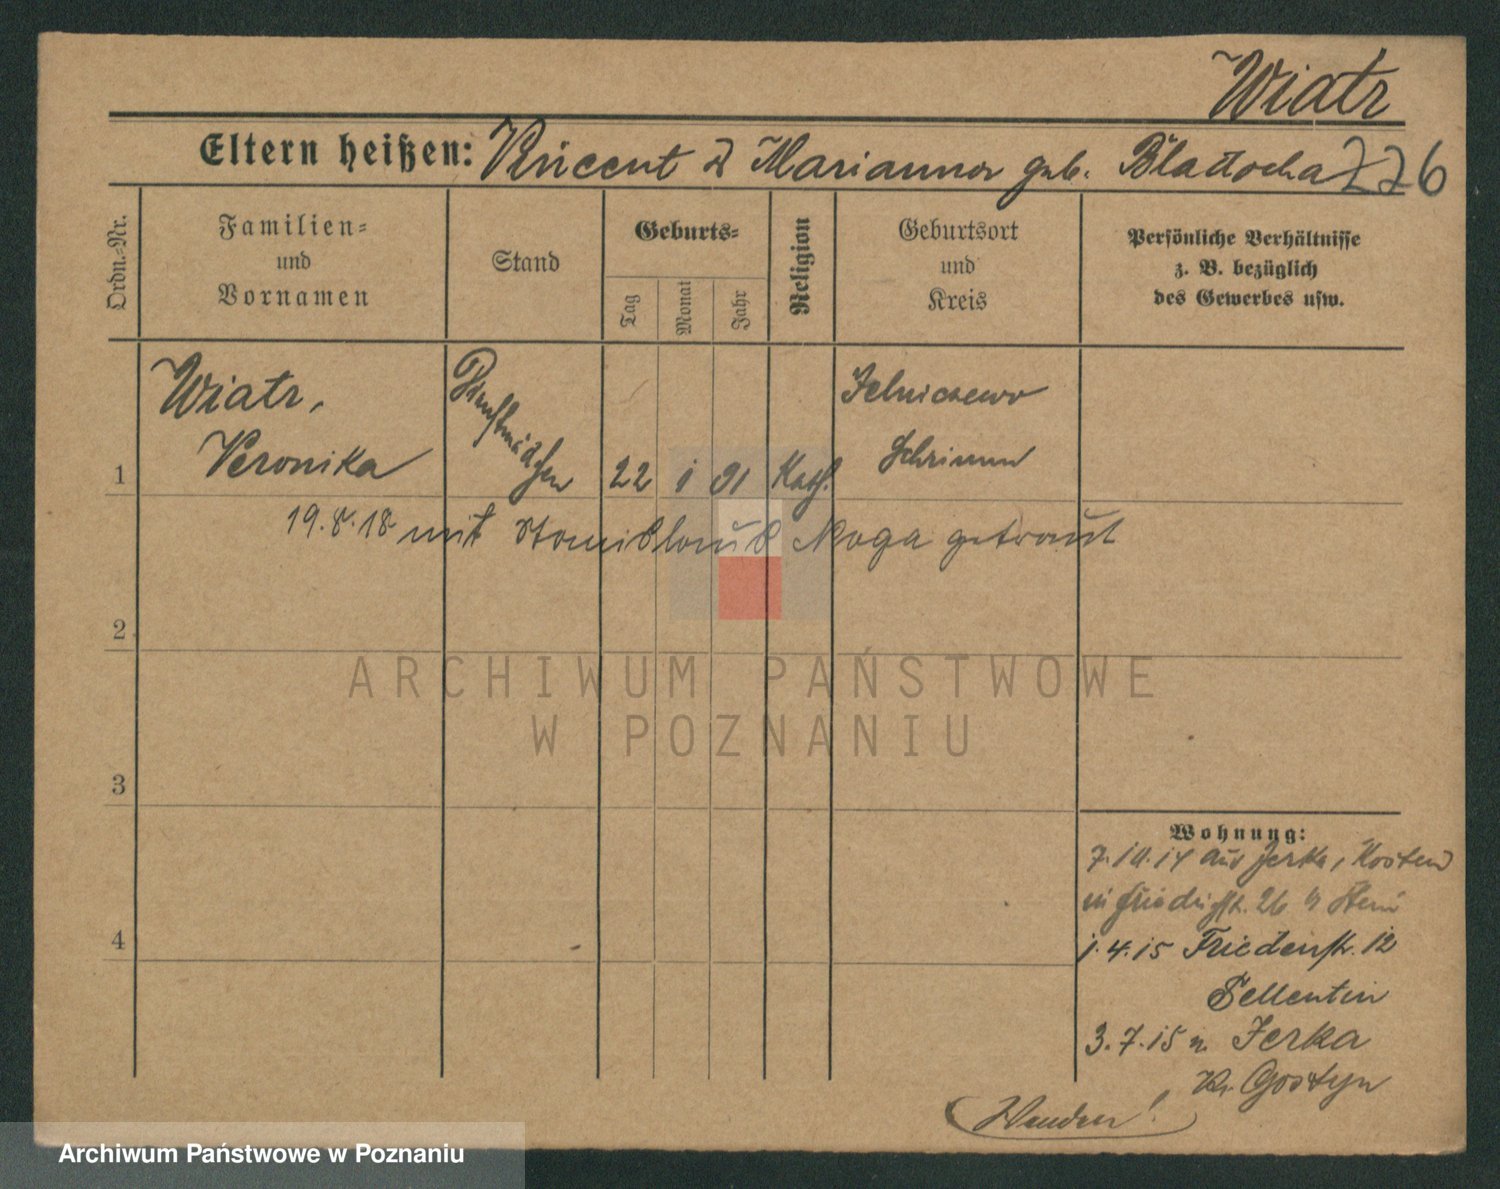 Wiatr
Eltern heißen: Vincent & Marianna geb. Bladocha 226
Ordn.-Nr.
Familien-
und
Vornamen
Stand
Geburts-
Tag
Monat
Jahr
Religion
Geburtsort
und
Kreis
Persönliche Verhältnisse
z. B. bezüglich
des Gewerbes usw.
1
Wiatr,
Veronika
Dienstmädchen
22 1 91 Kath.
Jelniczewo
Schrimm
19.8.18 mit Stanislaus Noga getraut
2
ARCHIWUM PAŃSTWOWE
W POZNANIU
3
4
Wohnung:
7.10.14 aus Jerka, Kosten
in Friedrichstr. 26
1.4.15 Friedenstr. 12
Sellentin
3.7.15 n. Jerka
Kr. Gostyn
Wenden!
Archiwum Państwowe w Poznaniu